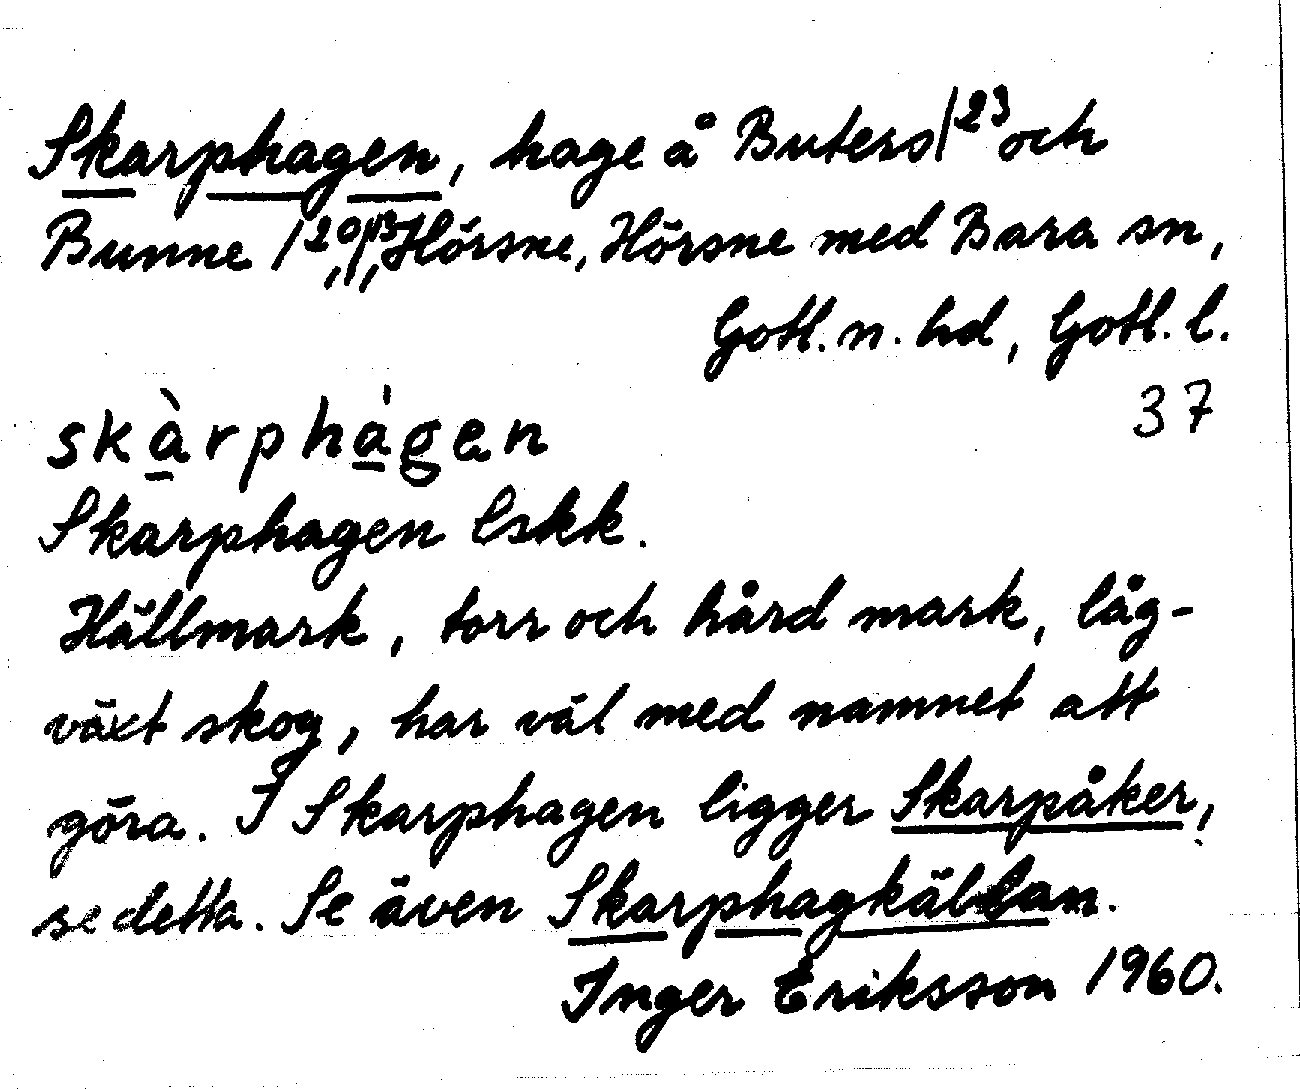 Skarphagen, hage å Buters 1/23 och
Bunne 1/20, 1/13, Hörsne, Hörsne med Bara sn,
Gotl. n. hd, Gotl. l.
37
skàrphágen
Skarphagen Eskk.
Hällmark, torr och hård mark, låg-
växt skog, har väl med namnet att
göra. I Skarphagen ligger Skarpåker,
se detta. Se även Skarphagkällan.
Inger Eriksson 1960.